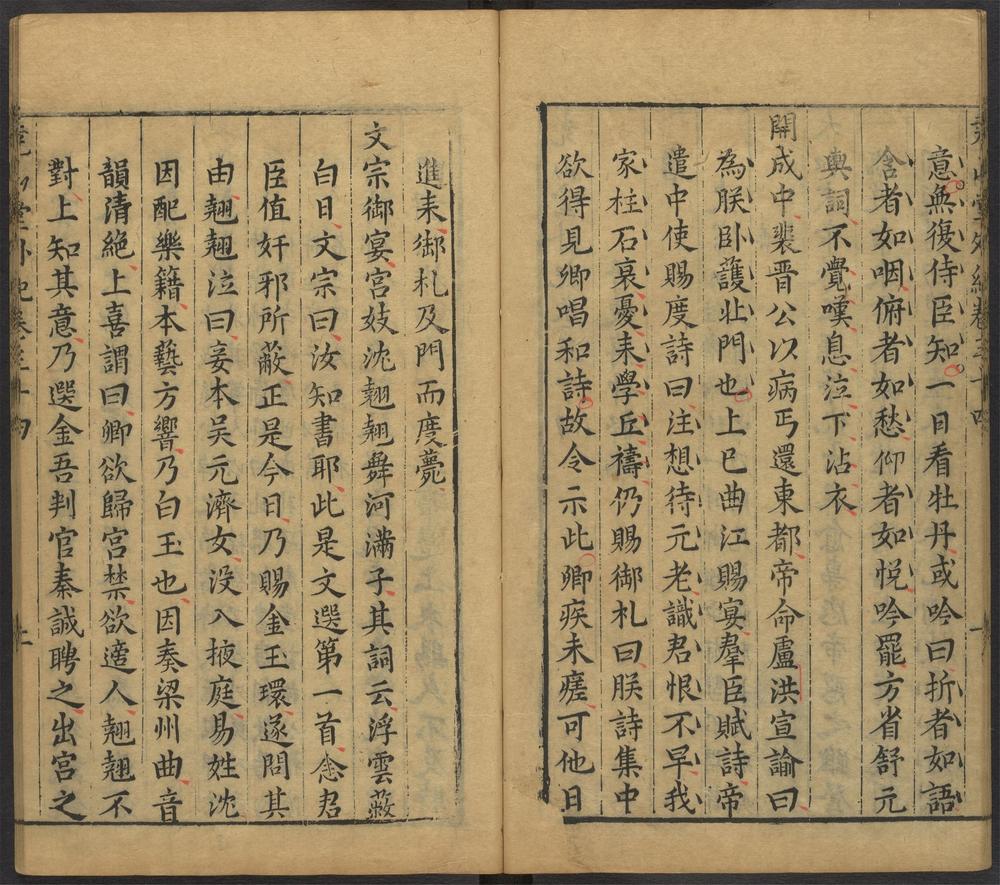 意無復侍臣知一日看牡丹或吟曰折者如語
含者如咽俯者如愁仰者如悅吟罷方省舒元
輿詞不覺嘆息泣下沾衣
開成中裴晉公以病丐還東都帝命盧洪宣諭曰
為朕卧䕶北門也上巳曲江賜宴羣臣賦詩帝
遣中使賜度詩曰注想待元老識君恨不早我
家柱石衰憂来學丘禱仍賜御札曰朕詩集中
欲得見卿唱和詩故令示此卿疾未瘥可他日
進来御札及門而度薨
文宗御宴宮妓沈翹翹舞河滿子其詞云浮雲蔽
白日文宗曰汝知書耶此是文選第一首念君
臣值奸邪所蔽正是今日乃賜金玉環遂問其
由翹翹泣曰妾本吴元濟女没入掖庭易姓沈
因配樂籍本藝方響乃白玉也因奏梁州曲音
韻清絶上喜謂曰卿欲歸宮禁欲適人翹翹不
對上知其意乃選金吾判官秦誠聘之出宮之